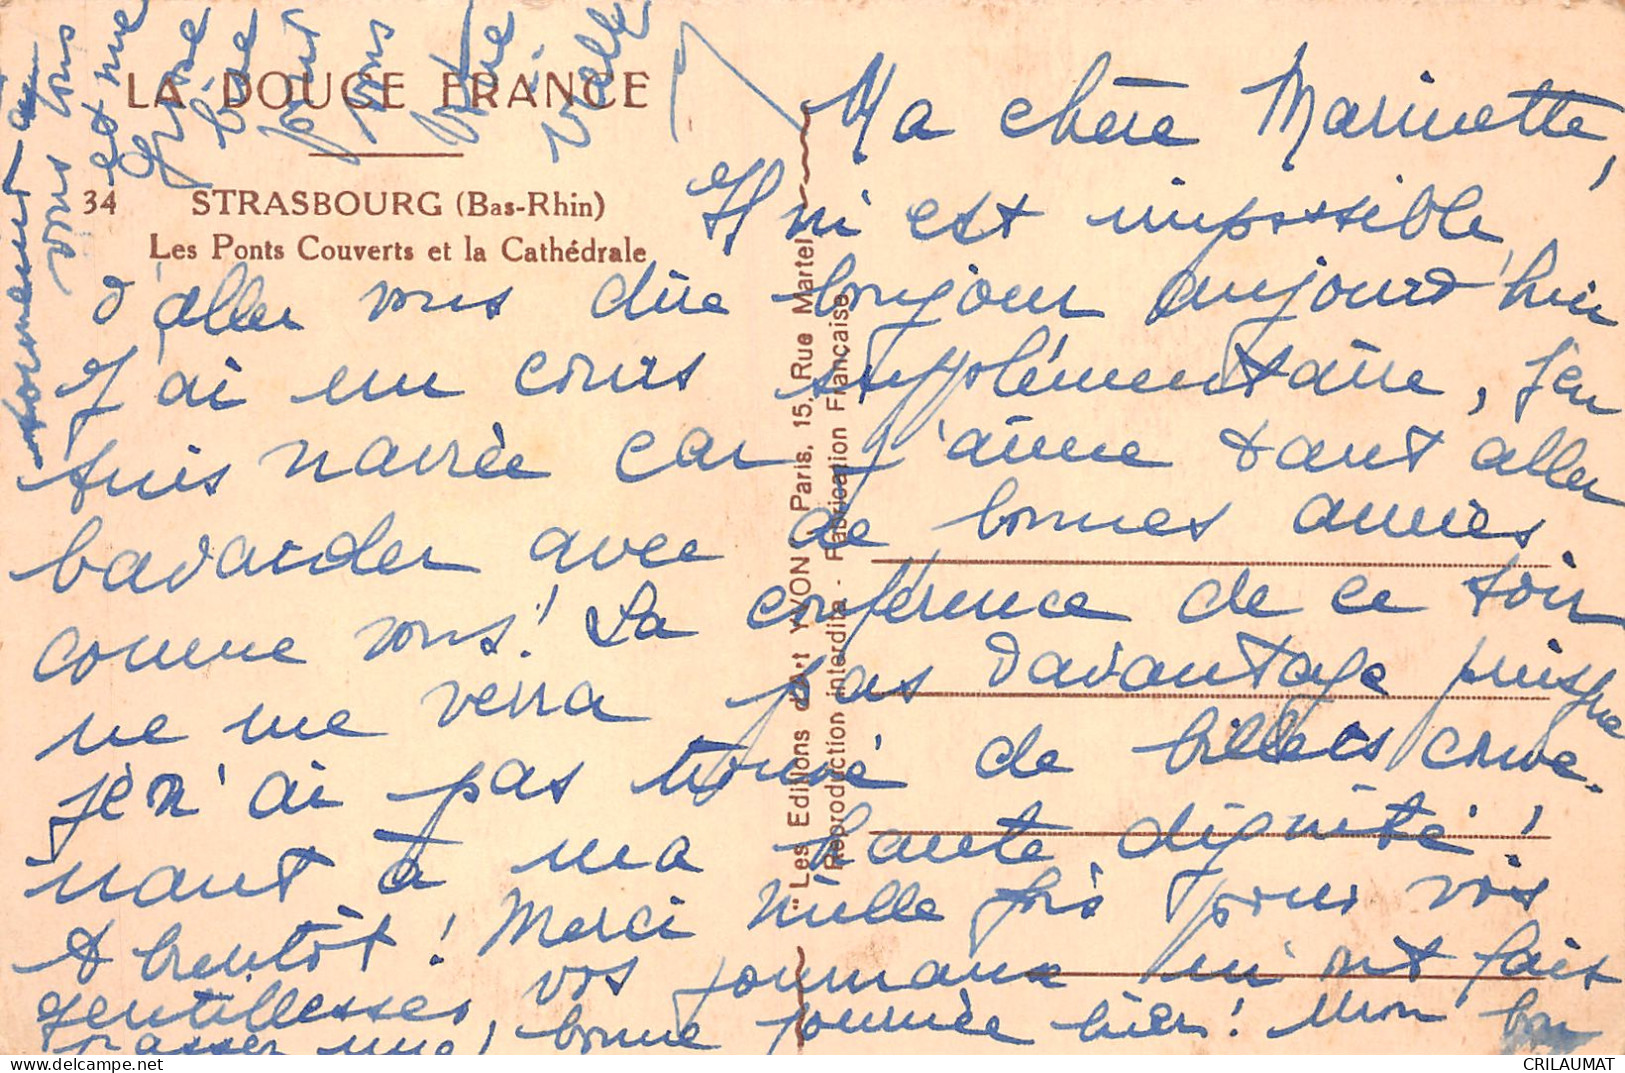 LA DOUCE FRANCE
34 STRASBOURG (Bas-Rhin)
Les Ponts Couverts et la Cathédrale
"Les Editions d'art YVON" Paris, 15, Rue Martel
Reproduction interdite - Fabrication Française
Ma chère Marinette,
Il m'est impossible
d'aller vous dire bonjour aujourd'hui
J'ai un cours supplémentaire, j'en
suis navrée car j'aime tant aller
bavarder avec de bonnes amies
comme vous! La conférence de ce soir
ne me verra pas davantage puisque
je n'ai pas trouvé de billets conve-
nant à ma haute dignité!
A bientôt! Merci mille fois pour vos
gentillesses, vos journaux m'ont fait
passer une bonne journée hier! Mon bon
vous tous
et une
grosse
bise
pour
vous
CRILAUMAT